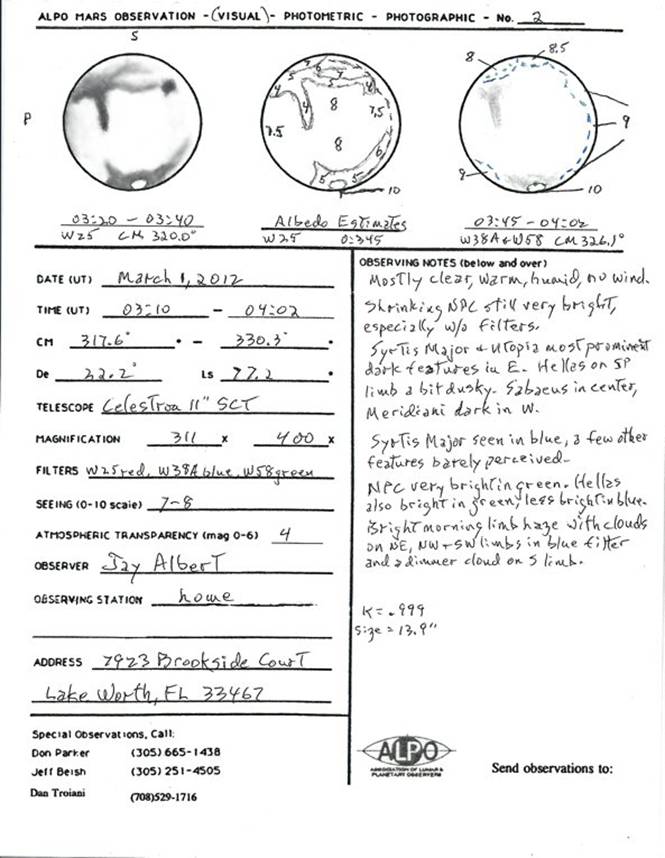 ALPO MARS OBSERVATION -(VISUAL)- PHOTOMETRIC - PHOTOGRAPHIC - No. 2
S
P
4
5
7
6
5
7
4
8
4
7.5
7.5
8
6
5
5
10
8
8.5
9
8
10
03:20 - 03:40
W25 CM 320.0°
Albedo Estimates
W25 0:345
03:45 - 04:02
W38A & W58 CM 326.1°
DATE (UT) March 1, 2012
TIME (UT) 03:10 - 04:02
CM 317.6° ° - 330.3° °
De 22.2° Ls 77.2 °
TELESCOPE Celestron 11" SCT
MAGNIFICATION 311 x 400 x
FILTERS W25 red, W38A blue, W58 green
SEEING (0-10 scale) 7-8
ATMOSPHERIC TRANSPARENCY (mag 0-6) 4
OBSERVER Jay Albert
OBSERVING STATION home
ADDRESS 7923 Brookside Court
Lake Worth, FL 33467
Special Observations, Call:
Don Parker (305) 665-1438
Jeff Beish (305) 251-4505
Dan Troiani (708)529-1716
OBSERVING NOTES (below and over)
Mostly clear, warm, humid, no wind.
Shrinking NPC still very bright,
especially w/o filters.
Syrtis Major & Utopia most prominent
dark features in E. Hellas on SP
limb a bit dusky. Sabaeus in center,
Meridiani dark in W.
Syrtis Major seen in blue, a few other
features barely perceived.
NPC very bright in green. Hellas
also bright in green, less bright in blue.
Bright morning limb haze with clouds
on NE, NW & SW limbs in blue filter
and a dimmer cloud on S limb.
K = .999
size = 13.9"
ALPO
ASSOCIATION OF LUNAR &
PLANETARY OBSERVERS
Send observations to: